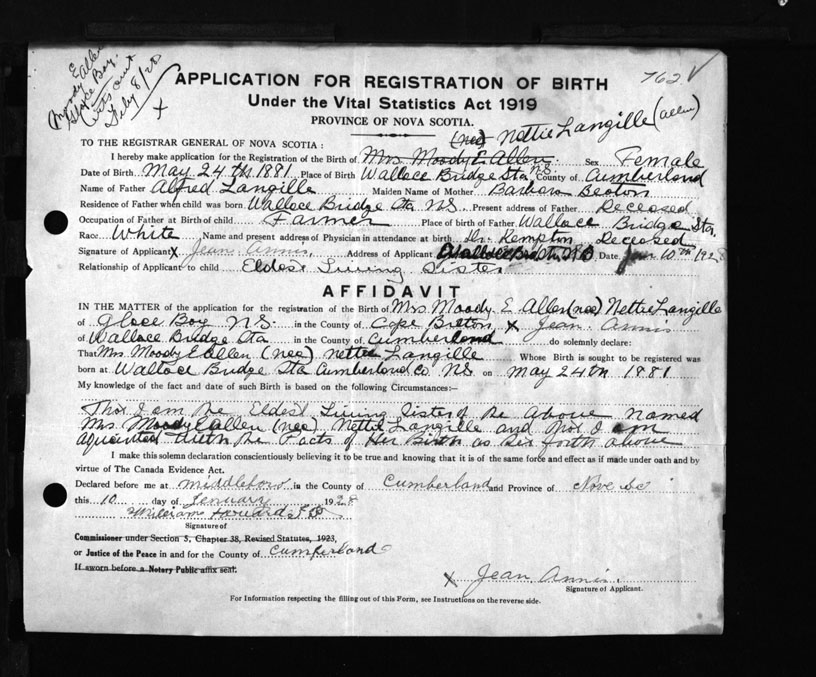 Moody E Allen
Glace Bay.
out
July 8/28
X
762 ✓
APPLICATION FOR REGISTRATION OF BIRTH
Under the Vital Statistics Act 1919
PROVINCE OF NOVA SCOTIA.
(nee) Nettie Langille (Allen)
TO THE REGISTRAR GENERAL OF NOVA SCOTIA:
I hereby make application for the Registration of the Birth of Mrs Moody E. Allen Sex Female
Date of Birth May 24th 1881 Place of Birth Wallace Bridge Sta N.S. County of Cumberland
Name of Father Alfred Langille Maiden Name of Mother Barbara Beaton
Residence of Father when child was born Wallace Bridge Sta N.S. Present address of Father Deceased
Occupation of Father at Birth of child Farmer Place of birth of Father Wallace Bridge Sta.
Race White Name and present address of Physician in attendance at birth Dr. Kempton Deceased
Signature of Applicant X Jean Annis Address of Applicant Wallace Bridge Sta N.S Date Jan 10th 1928
Relationship of Applicant to child Eldest Living Sister
AFFIDAVIT
IN THE MATTER of the application for the registration of the Birth of Mrs Moody E Allen (nee) Nettie Langille
of Glace Bay N.S. in the County of Cape Breton X Jean Annis
of Wallace Bridge Sta in the County of Cumberland do solemnly declare:
That Mrs Moody E Allen (nee) Nettie Langille Whose Birth is sought to be registered was
born at Wallace Bridge Sta Cumberland Co. N.S on May 24th 1881
My knowledge of the fact and date of such Birth is based on the following Circumstances:—
That I am the Eldest Living Sister of the above named
Mrs Moody E Allen (nee) Nettie Langille and that I am
aquanted with the Facts of Her Birth as Set forth above
I make this solemn declaration conscientiously believing it to be true and knowing that it is of the same force and effect as if made under oath and by
virtue of The Canada Evidence Act.
Declared before me at Middleboro in the County of Cumberland and Province of Nova Sc
this 10 day of January 1928
William Howard J.P
Signature of
Commissioner under Section 5, Chapter 38, Revised Statutes, 1923,
or Justice of the Peace in and for the County of Cumberland
If sworn before a Notary Public affix seal.
X Jean Annis.
Signature of Applicant.
For Information respecting the filling out of this Form, see Instructions on the reverse side.